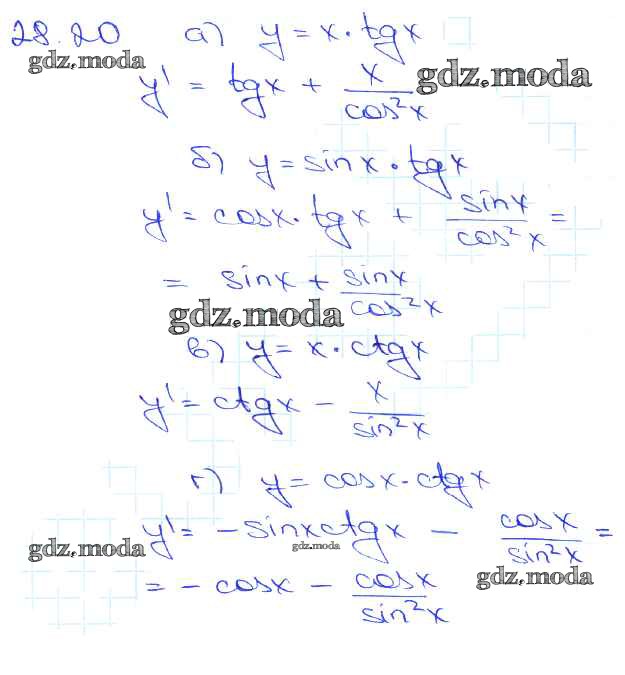 28.20 а) y = x · tgx
gdz.moda
y' = tgx + x/cos²x gdz.moda
б) y = sinx · tgx
y' = cosx · tgx + sinx/cos²x =
= sinx + sinx/cos²x
gdz.moda
в) y = x · ctgx
y' = ctgx − x/sin²x
г) y = cosx · ctgx
y' = −sinxctgx − cosx/sin²x =
gdz.moda gdz.moda
= −cosx − cosx/sin²x gdz.moda